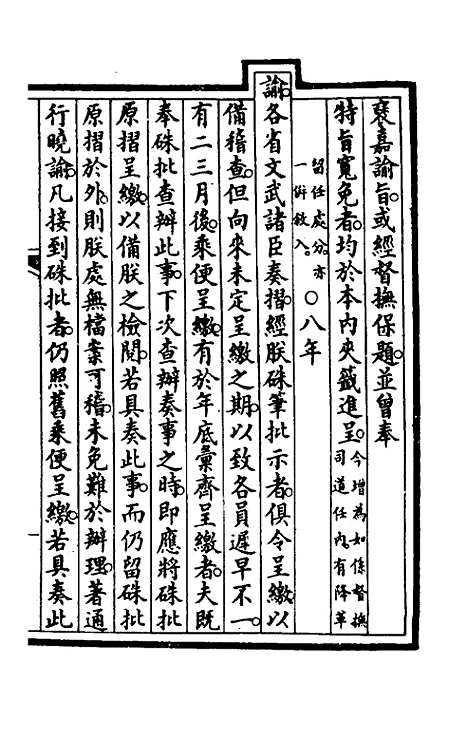 褒嘉諭旨。或經督撫保題。並曾奉
特旨寬免者。均於本內夾籤進呈。今增為如係督撫
司道任內。有降革
留任處分。亦
一併敘入。○八年
諭。各省文武諸臣奏摺。經朕硃筆批示者。俱令呈繳。以
備稽查。但向來未定呈繳之期。以致各員遲早不一。
有二三月後。乘便呈繳。有於年底彙齊呈繳者。夫既
奉硃批查辦此事。下次查辦奏事之時。即應將硃批
原摺呈繳。以備朕之檢閱。若具奏此事。而仍留硃批
原摺於外。則朕處無檔案可稽。未免難於辦理。著通
行曉諭。凡接到硃批者。仍照舊乘便呈繳。若具奏此